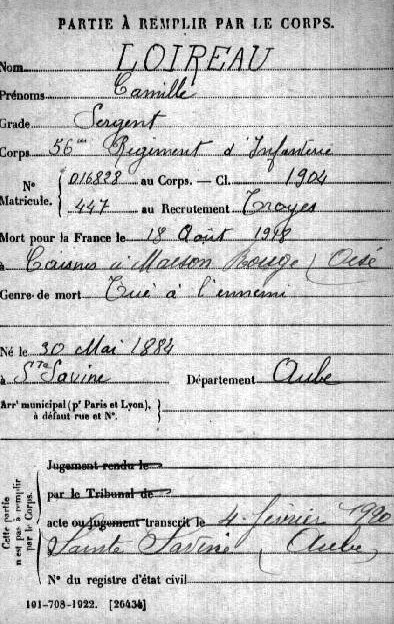 PARTIE À REMPLIR PAR LE CORPS.
Nom LOIREAU
Prénoms Camille
Grade Sergent
Corps 56me Régiment d'Infanterie
N° Matricule. { 016828 au Corps. — Cl. 1904
447 au Recrutement Troyes
Mort pour la France le 18 Août 1918
à Maison Rouge (Oise
Genre de mort Tué à l'ennemi
Né le 30 Mai 1884
à Ste Savine Département Aube
Arrt municipal (pr Paris et Lyon), à défaut rue et N°. }
Cette partie n'est pas à remplir par le Corps.
Jugement rendu le
par le Tribunal de
acte ou jugement transcrit le 4 février 1920
Sainte Savine (Aube)
N° du registre d'état civil
101-708-1922. [26434]